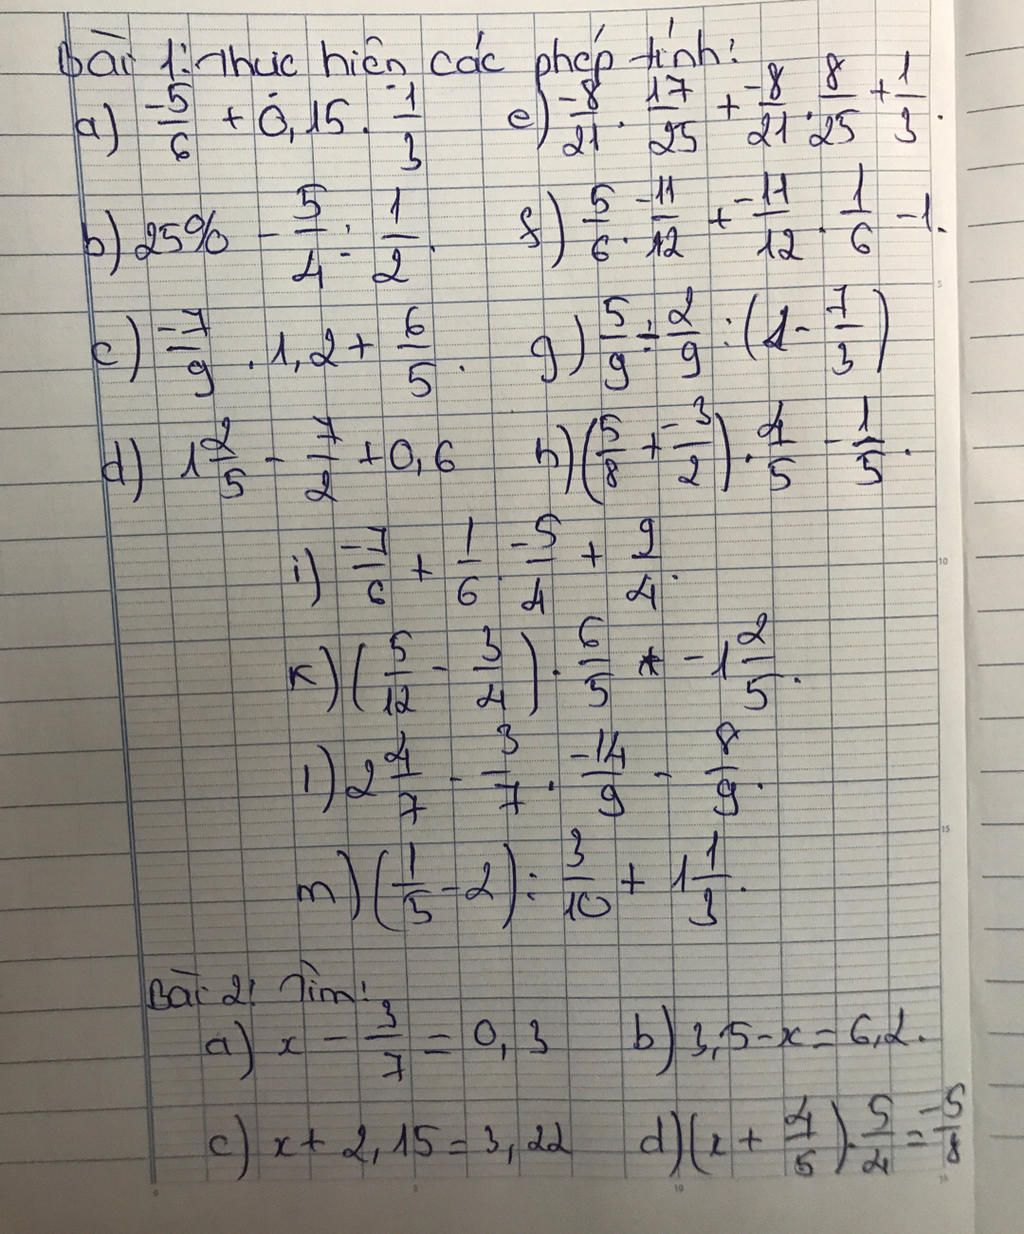 Bài 1: Thực hiện các phép tính:
a) -5/6 + 0,15 . -1/3 e) -8/21 . 17/25 + -8/21 . 8/25 + 1/3.
b) 25% - 5/4 : 1/2. f) 5/6 . -11/12 + -11/12 . 1/6 - 1.
c) -7/9 . 1,2 + 6/5. g) 5/9 + 2/9 : (1 - 7/3)
d) 1 2/5 - 7/2 + 0,6 h) (5/8 + -3/2) . 4/5 - 1/5.
i) -7/6 + 1/6 . -5/4 + 9/4.
k) (5/12 - 3/4) . 6/5 - 1 2/5.
l) 2 4/7 - 3/7 . -14/9 - 8/9.
m) (1/5 - 2) : 3/10 + 1 1/3.
Bài 2: Tìm:
a) x - 3/7 = 0,3 b) 3,5 - x = 6,2.
c) x + 2,15 = 3,22 d) (x + 4/5) . 5/4 = -5/8